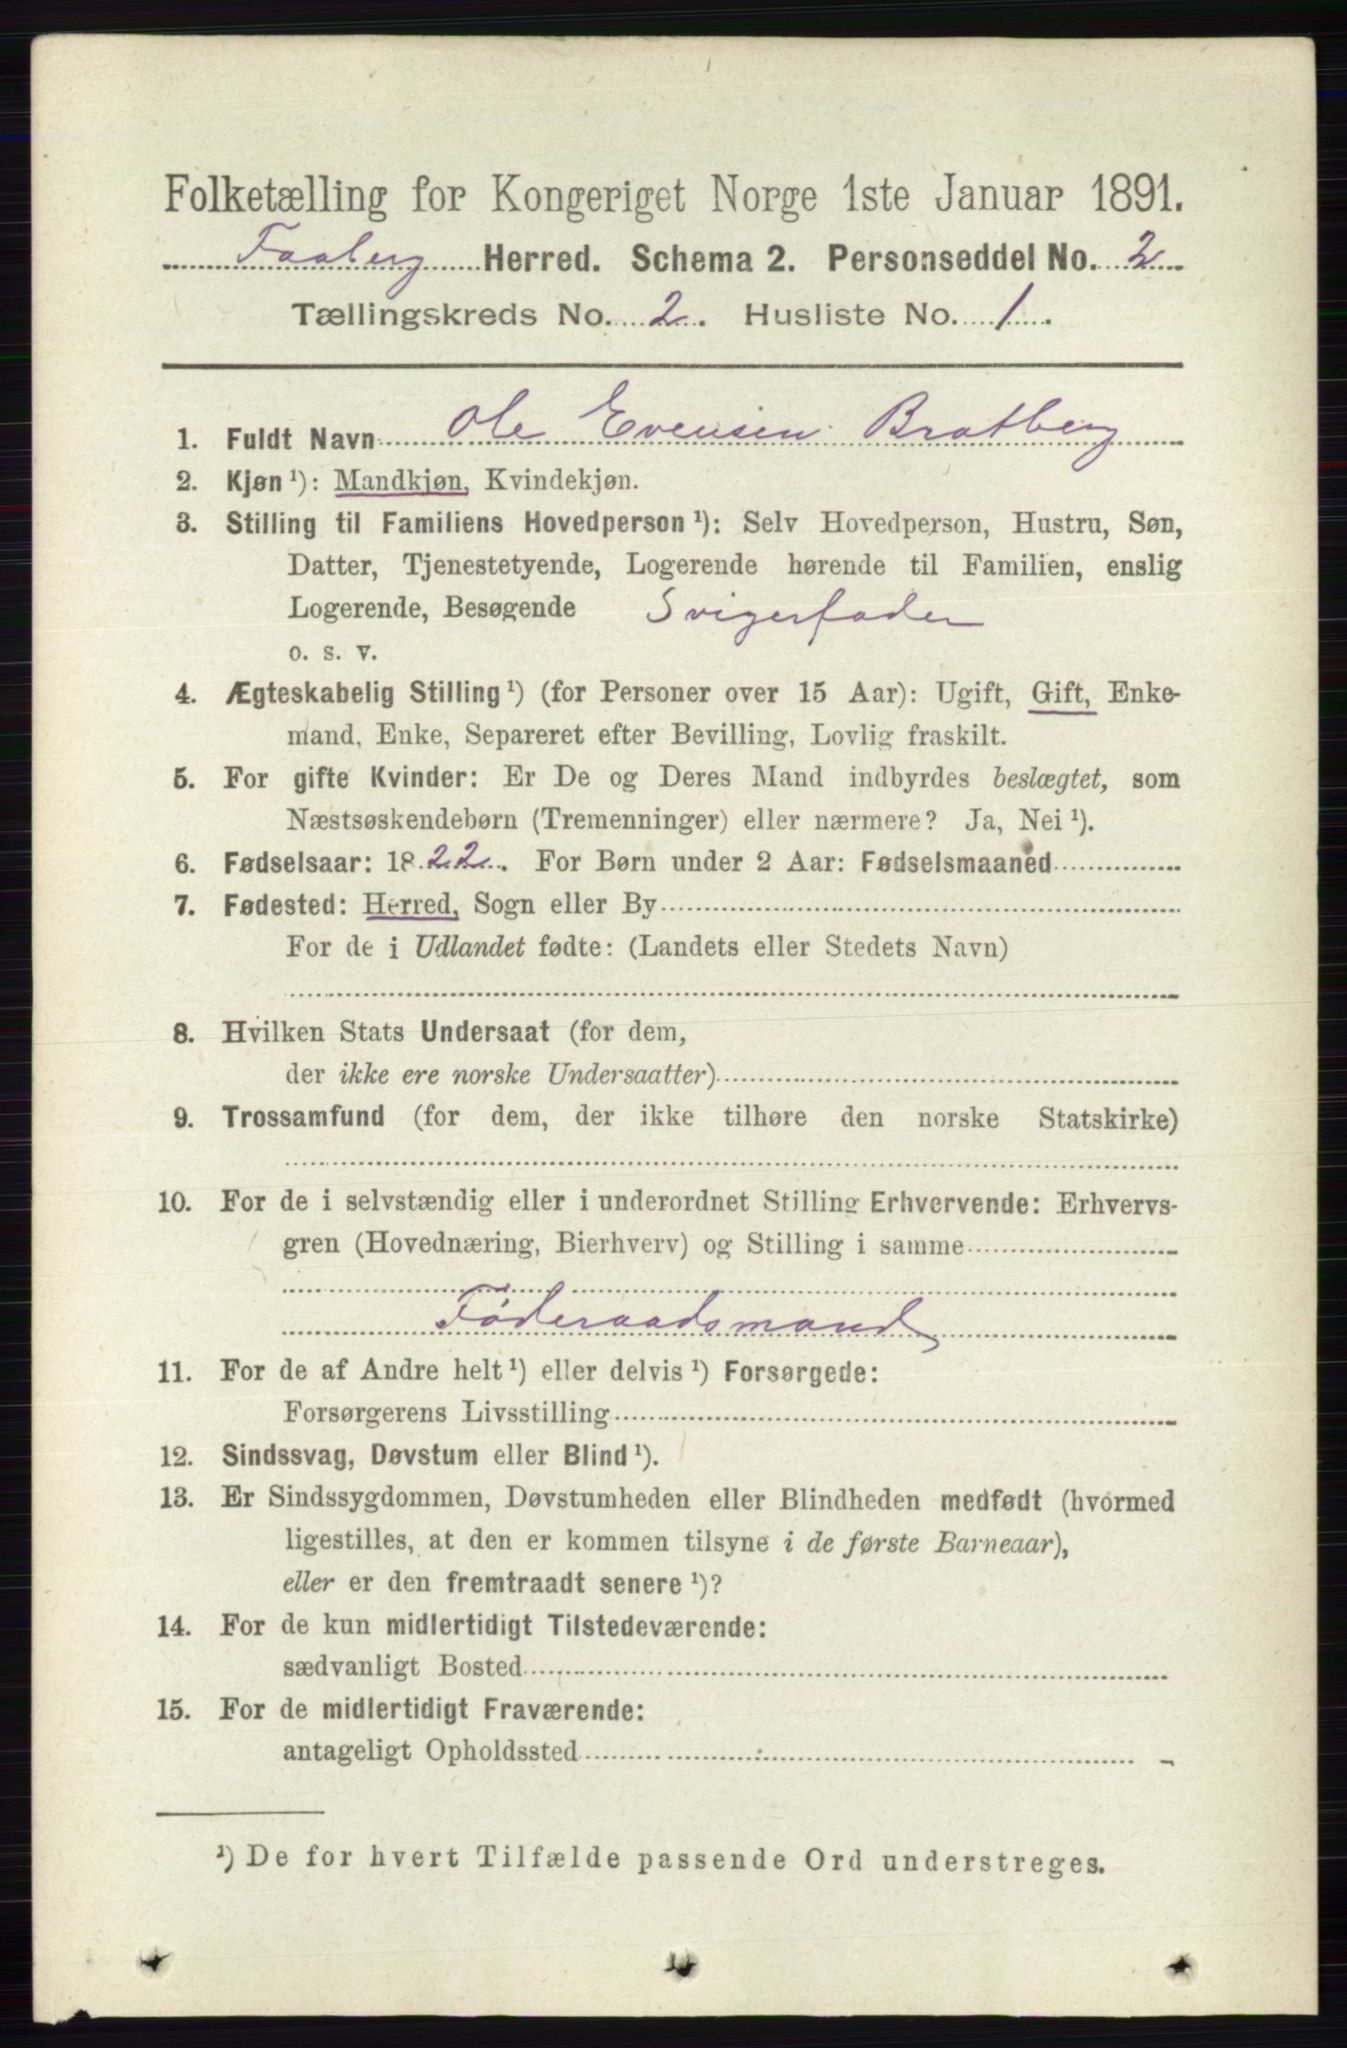 Folketælling for Kongeriget Norge 1ste Januar 1891.
Faaberg Herred. Schema 2. Personseddel No. 2
Tællingskreds No. 2. Husliste No. 1.
1. Fuldt Navn Ole Evensen Bratberg
2. Kjøn ¹): Mandkjøn, Kvindekjøn.
3. Stilling til Familiens Hovedperson ¹): Selv Hovedperson, Hustru, Søn,
Datter, Tjenestetyende, Logerende hørende til Familien, enslig
Logerende, Besøgende Svigerfader
o. s. v.
4. Ægteskabelig Stilling ¹) (for Personer over 15 Aar): Ugift, Gift, Enke-
mand, Enke, Separeret efter Bevilling, Lovlig fraskilt.
5. For gifte Kvinder: Er De og Deres Mand indbyrdes beslægtet, som
Næstsøskendebørn (Tremenninger) eller nærmere? Ja, Nei ¹).
6. Fødselsaar: 1822. For Børn under 2 Aar: Fødselsmaaned
7. Fødested: Herred, Sogn eller By
For de i Udlandet fødte: (Landets eller Stedets Navn)
8. Hvilken Stats Undersaat (for dem,
der ikke ere norske Undersaatter)
9. Trossamfund (for dem, der ikke tilhøre den norske Statskirke)
10. For de i selvstændig eller i underordnet Stilling Erhvervende: Erhvervs-
gren (Hovednæring, Bierhverv) og Stilling i samme
Føderaadsmand
11. For de af Andre helt ¹) eller delvis ¹) Forsørgede:
Forsørgerens Livsstilling
12. Sindssvag, Døvstum eller Blind ¹).
13. Er Sindssygdommen, Døvstumheden eller Blindheden medfødt (hvormed
ligestilles, at den er kommen tilsyne i de første Barneaar),
eller er den fremtraadt senere ¹)?
14. For de kun midlertidigt Tilstedeværende:
sædvanligt Bosted
15. For de midlertidigt Fraværende:
antageligt Opholdssted
¹) De for hvert Tilfælde passende Ord understreges.